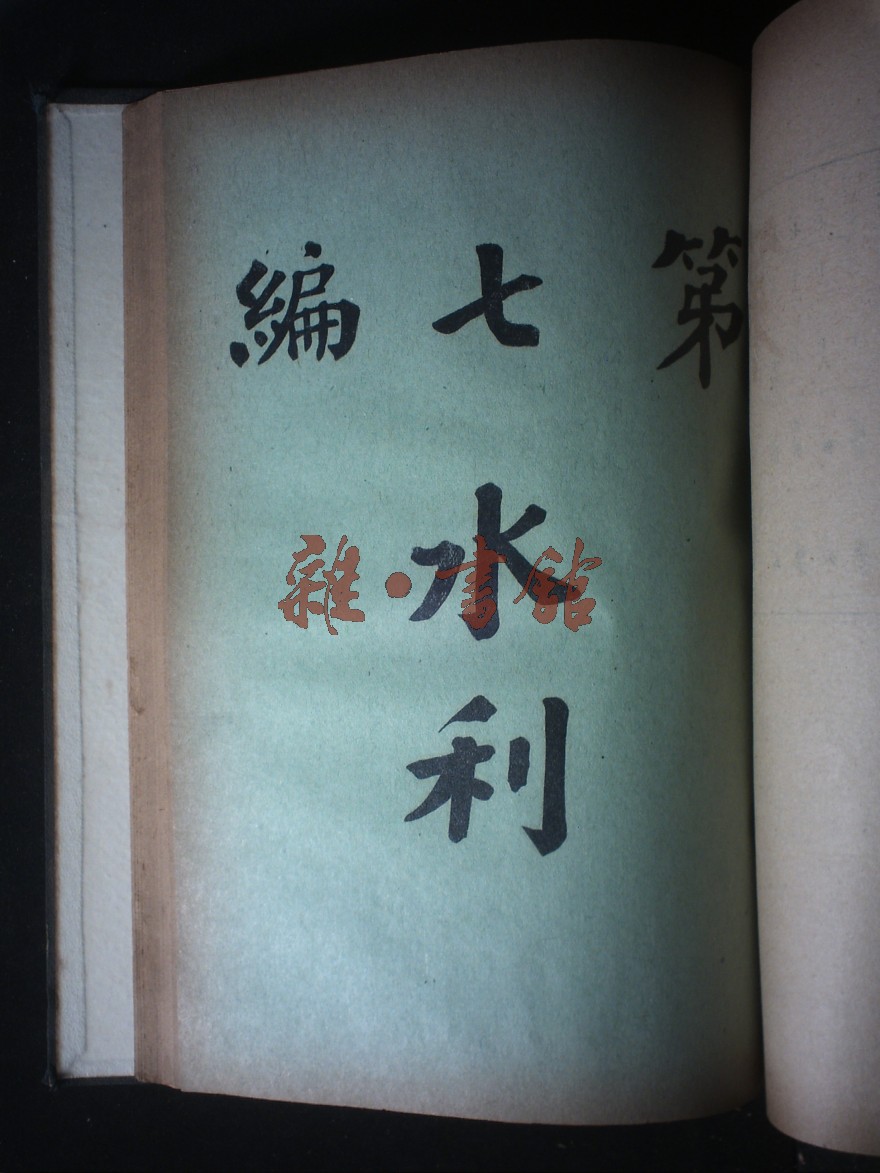 第七編
水利
雜·書館